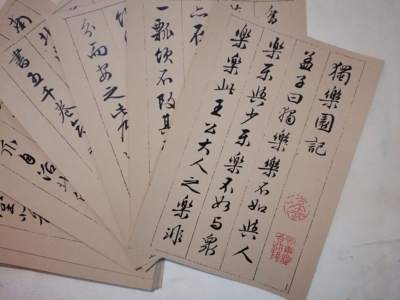 獨樂園記
孟子曰獨樂樂不如與人
樂乐與少乐樂不如與衆
樂樂此王公大人之樂非
一瓢飲不改其
分而安之此
書五千卷
自治